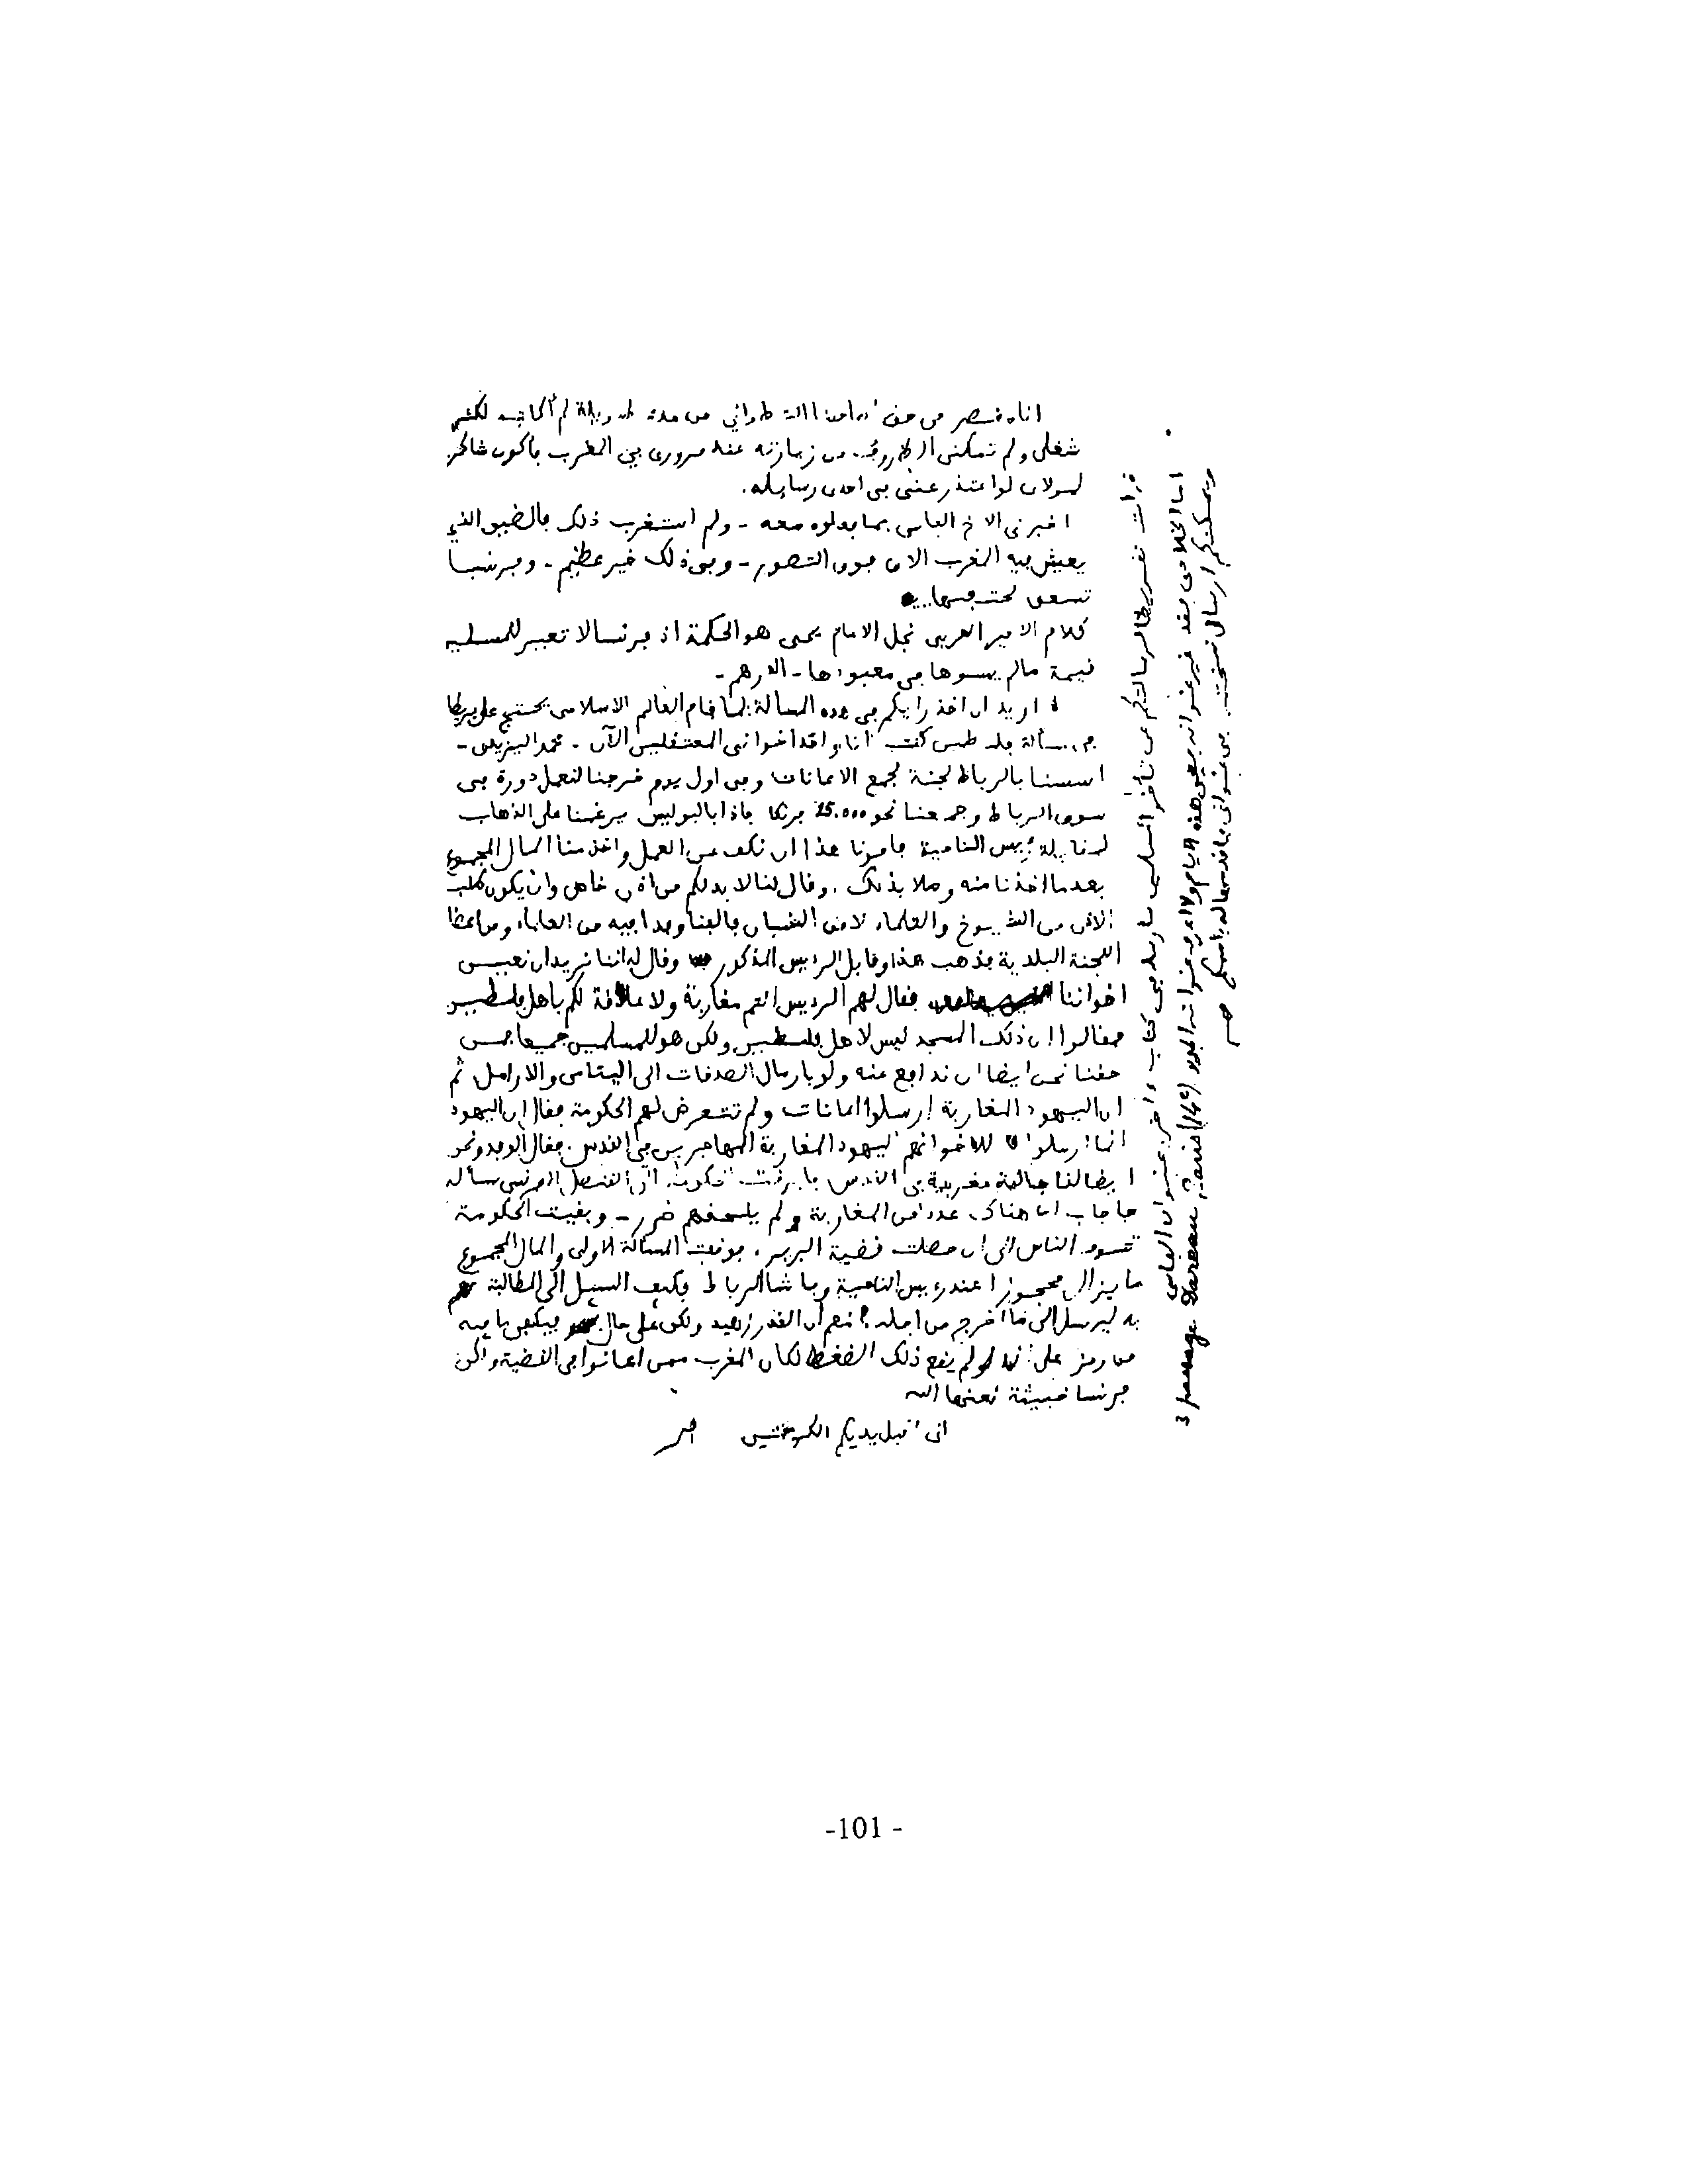 انا مقصر في حق من مدة طويلة لم اكاتبه لكثرة
شغلي ولم تمكني الظروف من زيارته عند مروري بالمغرب فاكون شاكرا
لمولاي لو اعتذر عني في احدى رسايله.
اخبرني الاخ الفاسي بما فعلوه معه - ولم استغرب ذلك فالضيق الذي
يعيش فيه المغرب الان فوق التصور - وفي ذلك خير عظيم - وفرنسا
تسعى لحتفها..
كلام الامير العربي نجل الامام يحيى هو الحكمة اذ فرنسا لا تعير للمسلمين
قيمة مالم يمسوها في معبودها - الدرهم -
اريد ان اخذ رايكم في هده المسالة: لما قام العالم الاسلامي يحتج على بريطانيا
في مسألة فلسطين كنت انا واحد اخواني المعتقلين الآن - محمد اليزيدي -
اسسنا بالرباط لجنة لجمع الاعانات وفي اول يوم خرجنا لنعمل دورة في
سوق الرباط وجمعنا نحو 25.000 فرنكا فاذا بالبوليس يرغمنا على الذهاب
لمقابلة رييس الناحية فامرنا هذا ان نكف عن العمل واخذ منا المال المجموع
بعدما اخذنا منه وصلا بذلك. وقال لنا لا بد لكم من اذن خاص وان يكون طلب
الاذن من الشيوخ والعلماء لا من الشبان فالفنا وفدا فيه من العلماء ومن اعضا
اللجنة البلدية فذهب هذا وقابل الرييس المذكور وقال له اننا نريد ان نعين
اخواننا فقال لهم الرييس انتم مغاربة ولا علاقة لكم باهل فلسطين
فقالوا ان ذلك المسجد ليس لاهل فلسطين ولكن هو للمسلمين جميعا فمن
حقنا نحن ايضا ان ندافع عنه ولو بارسال الصدقات الى اليتامى والارامل ثم
ان اليهود المغاربة ارسلوا اعانات ولم تتعرض لهم الحكومة فقال ان اليهود
انما ارسلوا لاخوانهم اليهود المغاربة المهاجرين في القدس. فقال الوفد ونحن
ايضا لنا جالية مغربية في القدس فابرقت الحكومة الى القنصل الفرنسي تساله
فاجاب ان هناك عددا من المغاربة ولم يلحقهم ضرر - وبقيت الحكومة
تسوف الناس الى ان حصلت قضية البربر. فوقفت المسالة الاولى والمال المجموع
ما يزال محجوزا عند رييس الناحية وباشا الرباط فكيف السبيل الى المطالبة
به ليرسل الى ما اخرج من اجله؟ نعم ان القدر زهيد ولكن على حال فيكفي ما فيه
من رمز على انه لو لم يقع ذلك الضغط لكان المغرب ممن اعانوا في القضية ولكن
فرنسا خبيثة لعنها الله
اني اقبل يديكم الكريمتين
قرات تقريظا لرسالتكم عن تأخر المسلمين
اما الخلاصي فقد غير عنوانه
3 passage Dareau Paris (14e)
ويمكنكم ارسال نسخته
-101 -